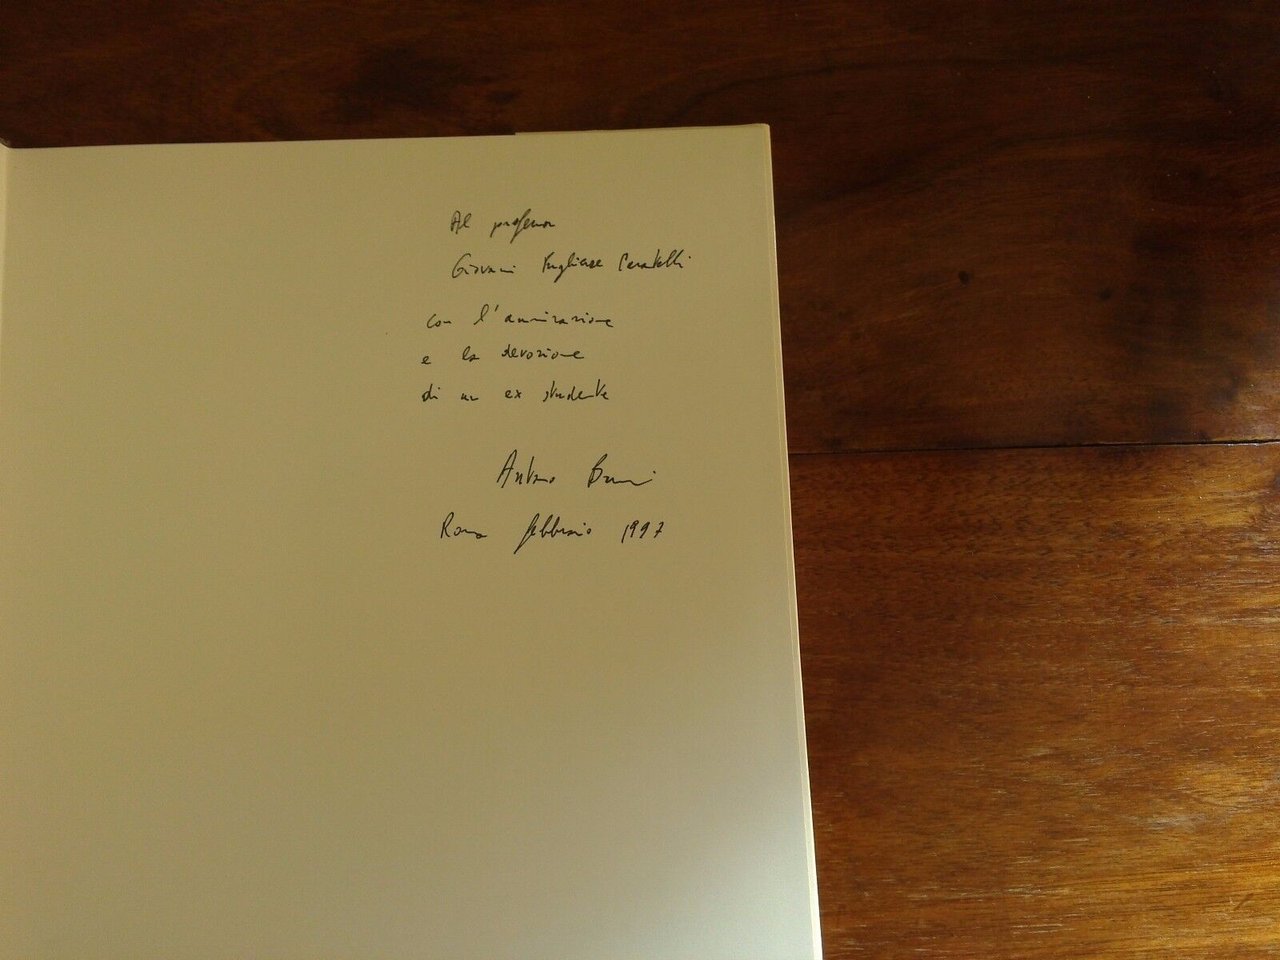 Al professor
Giovanni Pugliese Carratelli
con l'ammirazione
e la devozione
di un ex studente
Antonio
Roma febbraio 1997